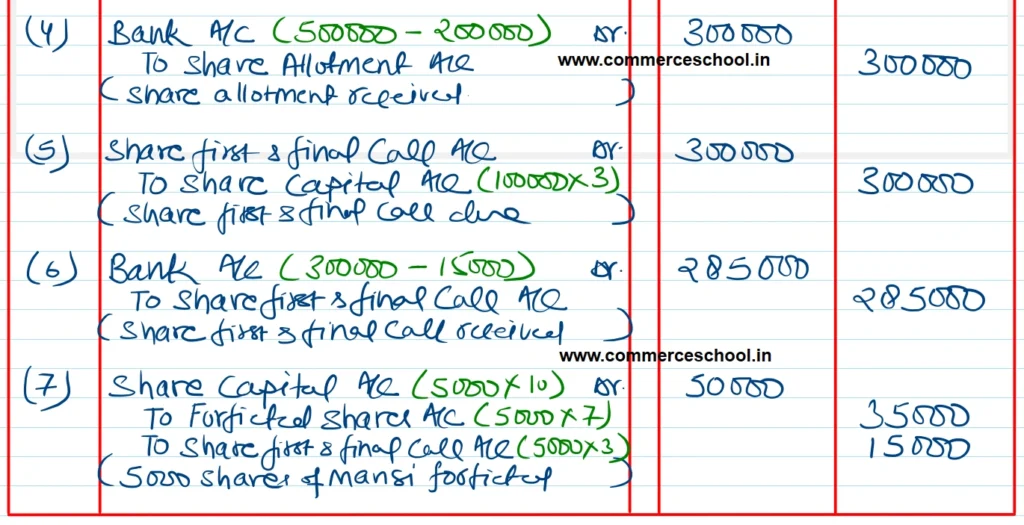 (4) Bank A/c (500000 - 200000) Dr. 300000
To Share Allotment A/c www.commerceschool.in 300000
(Share allotment received)
(5) Share first & final Call A/c Dr. 300000
To Share Capital A/c (100000×3) 300000
(Share first & final Call due)
(6) Bank A/c (300000 - 15000) Dr. 285000
To Share first & final Call A/c 285000
(Share first & final Call received)
www.commerceschool.in
(7) Share Capital A/c (5000×10) Dr. 50000
To Forficted Shares A/c (5000×7) 35000
To Share first & final Call A/c (5000×3) 15000
(5000 Shares of Mansi forficted)